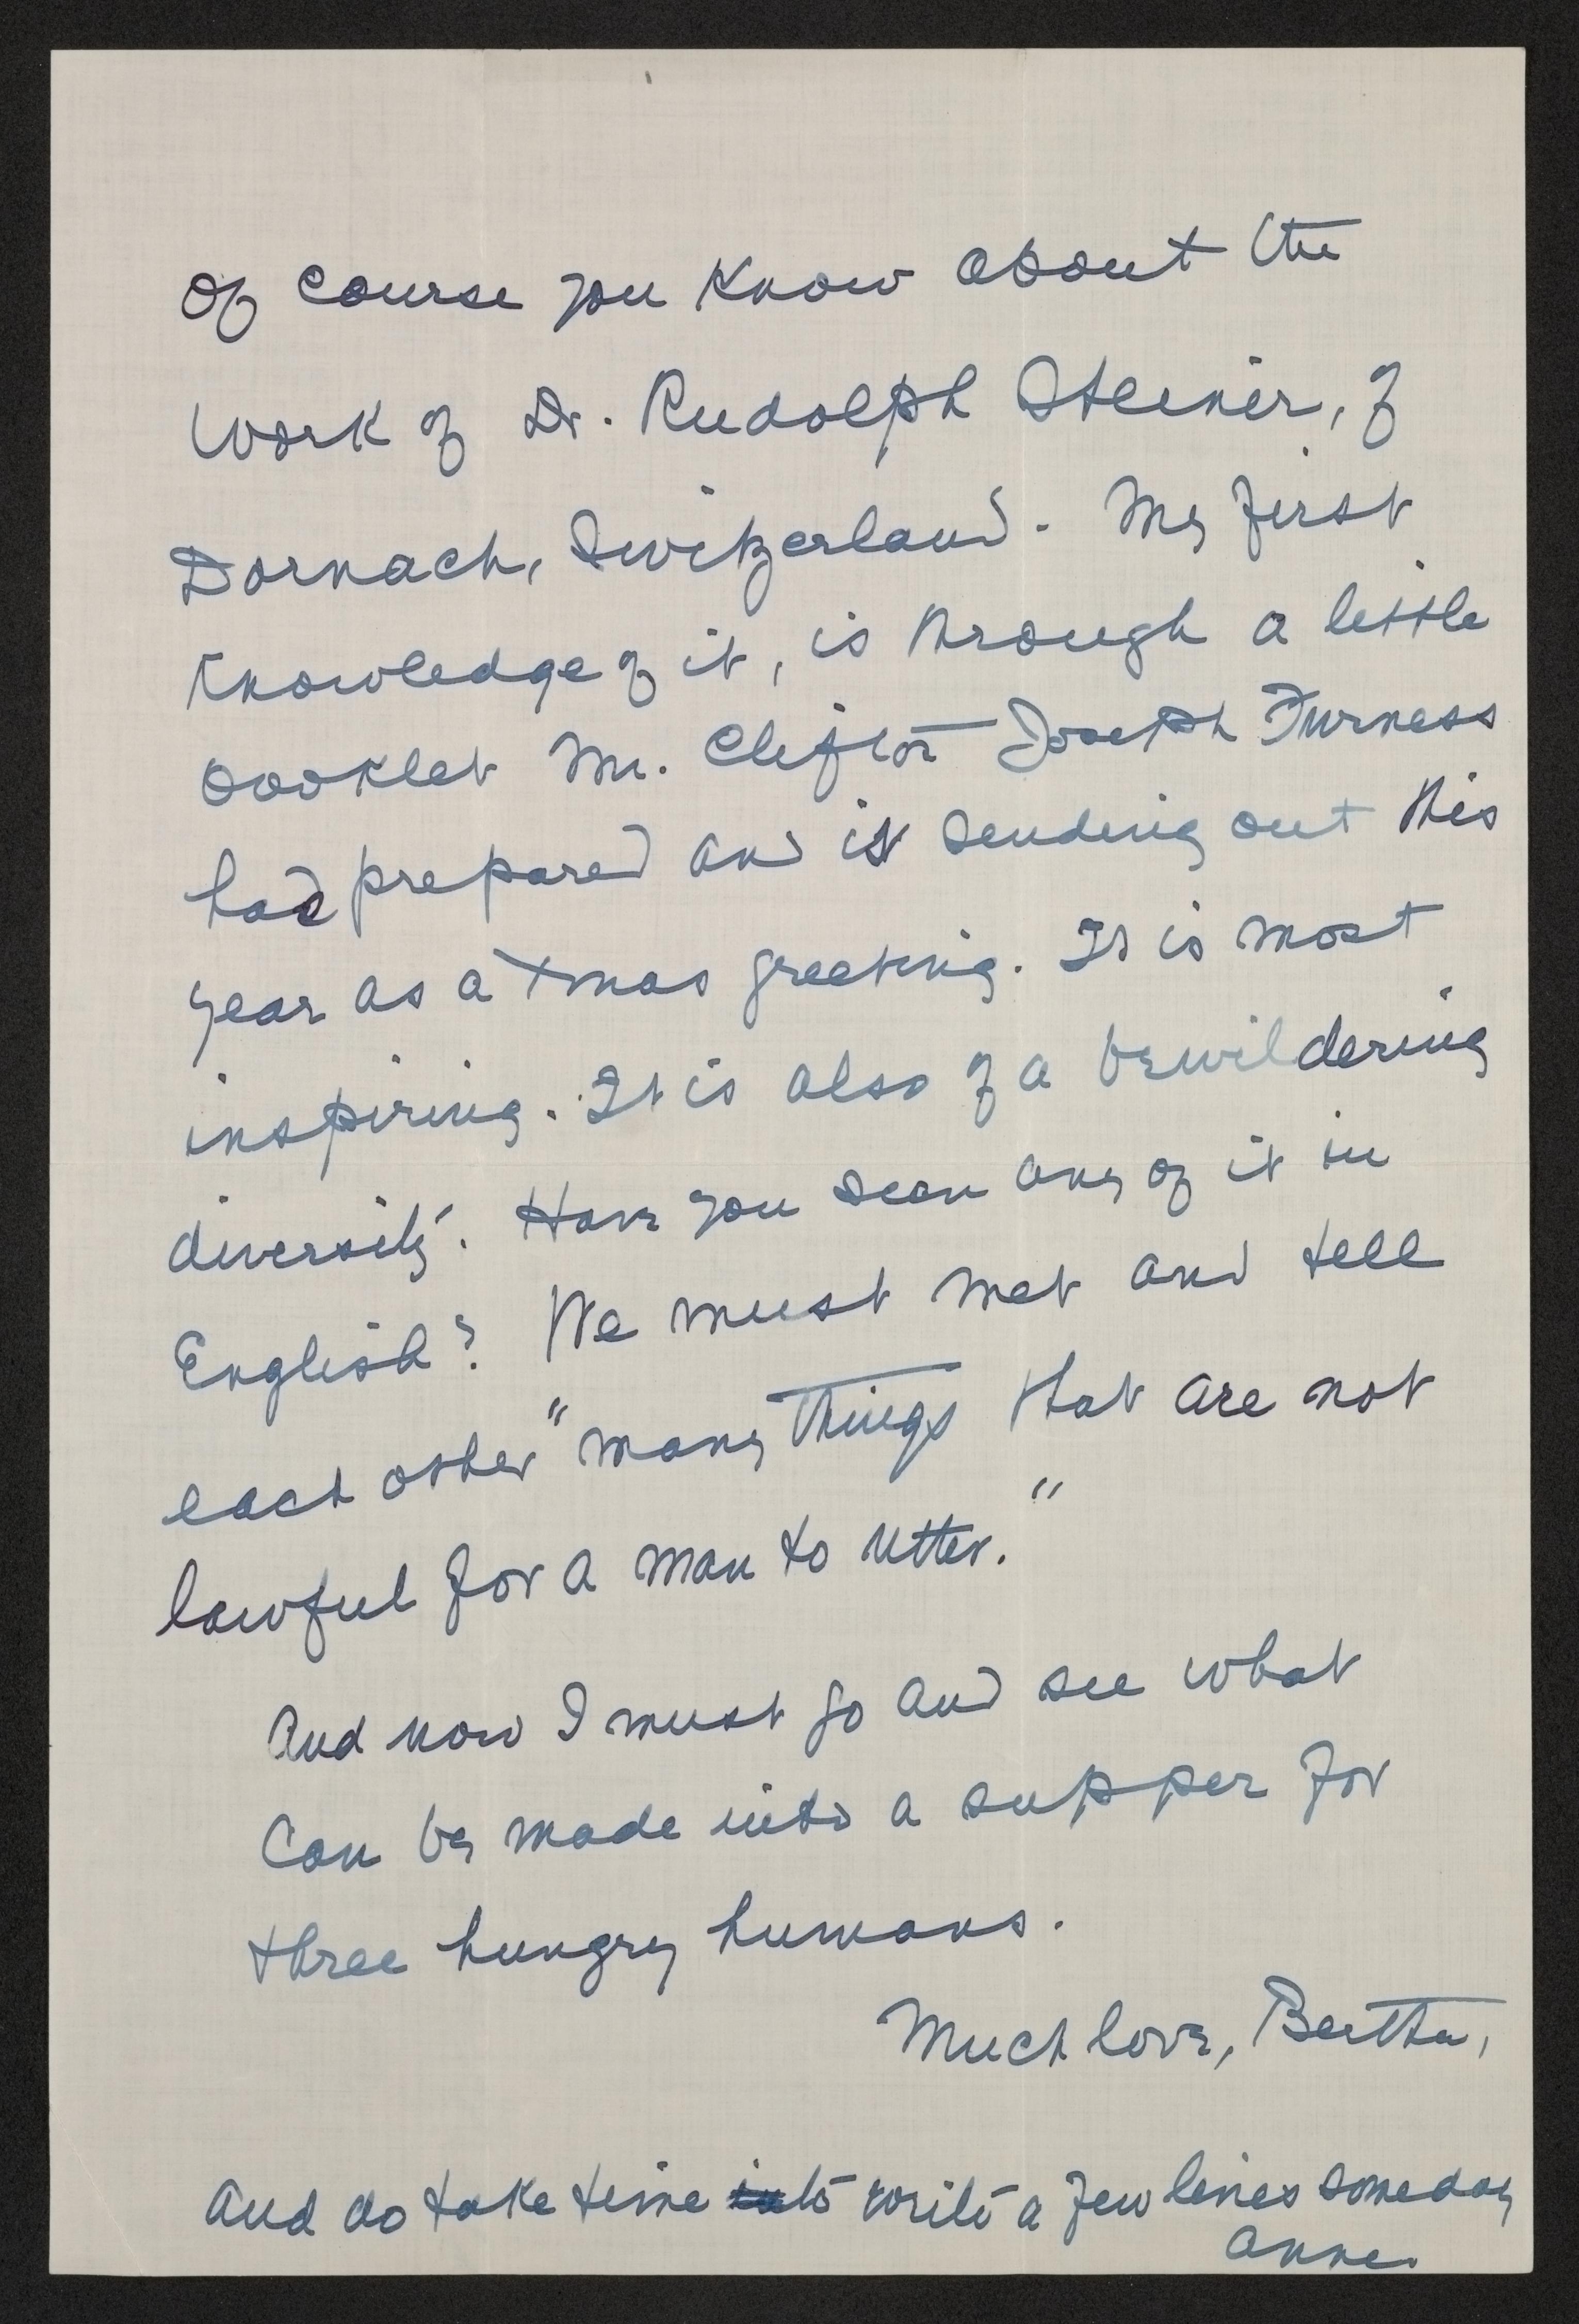 Of course you know about the
work of Dr. Rudolph Steiner, of
Dornach, Switzerland. My first
knowledge of it, is through a little
booklet Mr. Clifton Joseph Furness
had prepared and is sending out this
year as a Xmas greeting. It is most
inspiring. It is also of a bewildering
diversity. Have you seen any of it in
English? We must met and tell
each other "many things that are not
lawful for a man to utter."
And now I must go and see what
can be made into a supper for
three hungry humans.
Much love, Bertha,
And do take time to write a few lines someday
Anne.